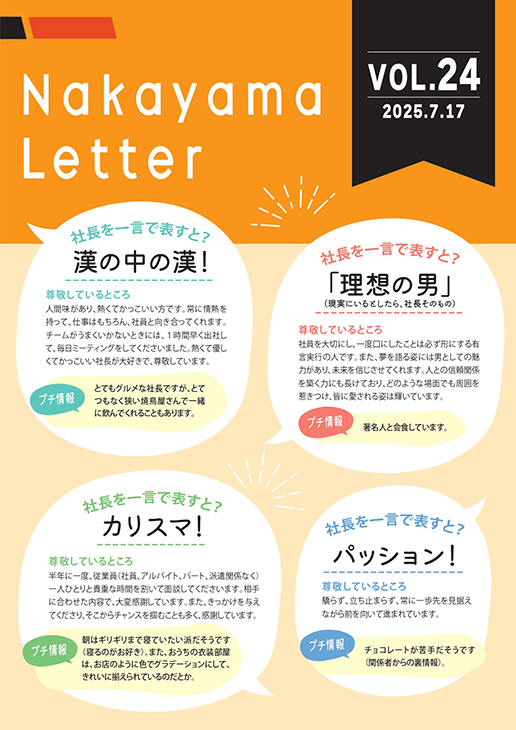 Nakayama
Letter
VOL.24
2025.7.17
社長を一言で表すと?
漢の中の漢!
尊敬しているところ
人間味があり、熱くてかっこいい方です。常に情熱を
持って、仕事はもちろん、社員と向き合ってくれます。
チームがうまくいかないときには、1時間早く出社し
て、毎日ミーティングをしてくださいました。熱くて優し
くてかっこいい社長が大好きで、尊敬しています。
プチ情報
とてもグルメな社長ですが、とて
つもなく狭い焼鳥屋さんで一緒
に飲んでくれることもあります。
社長を一言で表すと?
「理想の男」
(現実にいるとしたら、社長そのもの)
尊敬しているところ
社員を大切にし、一度口にしたことは必ず形にする有
言実行の人です。また、夢を語る姿には男としての魅
力があり、未来を信じさせてくれます。人との信頼関係
を築く力にも長けており、どのような場面でも周囲を
惹きつけ、皆に愛される姿は輝いています。
プチ情報
著名人と会食しています。
社長を一言で表すと?
カリスマ!
尊敬しているところ
半年に一度、従業員(社員、アルバイト、パート、派遣関係なく)
一人ひとりと貴重な時間を割いて面談してくださいます。相手
に合わせた内容で、大変感謝しています。また、きっかけを与え
てくださり、そこからチャンスを掴むことも多く、感謝しています。
プチ情報
朝はギリギリまで寝ていたい派だそうです
(寝るのがお好き)。また、おうちの衣装部屋
は、お店のように色でグラデーションにして、
きれいに揃えられているのだとか。
社長を一言で表すと?
パッション!
尊敬しているところ
驕らず、立ち止まらず、常に一歩先を見据え
ながら前を向いて進まれています。
プチ情報
チョコレートが苦手だそうです
(関係者からの裏情報)。